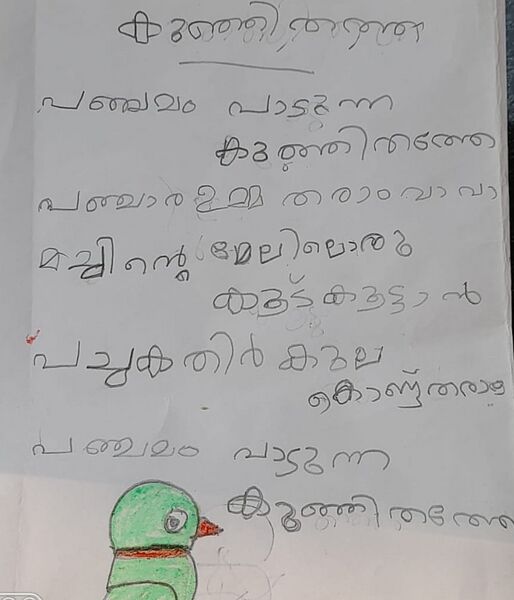 കുഞ്ഞിതത്ത
പഞ്ചമം പാടുന്ന
കുഞ്ഞിതത്തേ
പഞ്ചാര ഉമ്മ തരാം വാ വാ
മച്ചിന്റെ മേലിലൊരു
കൂട് കൂട്ടാൻ
പച്ചകതിർ കുല
കൊണ്ട് തരാമ
പഞ്ചമം പാടുന്ന
കുഞ്ഞിതത്തേ